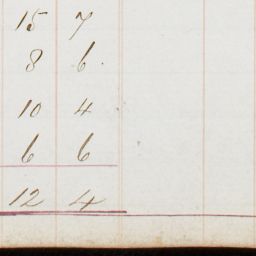 15 7
8 6.
10 4
6 6
12 4